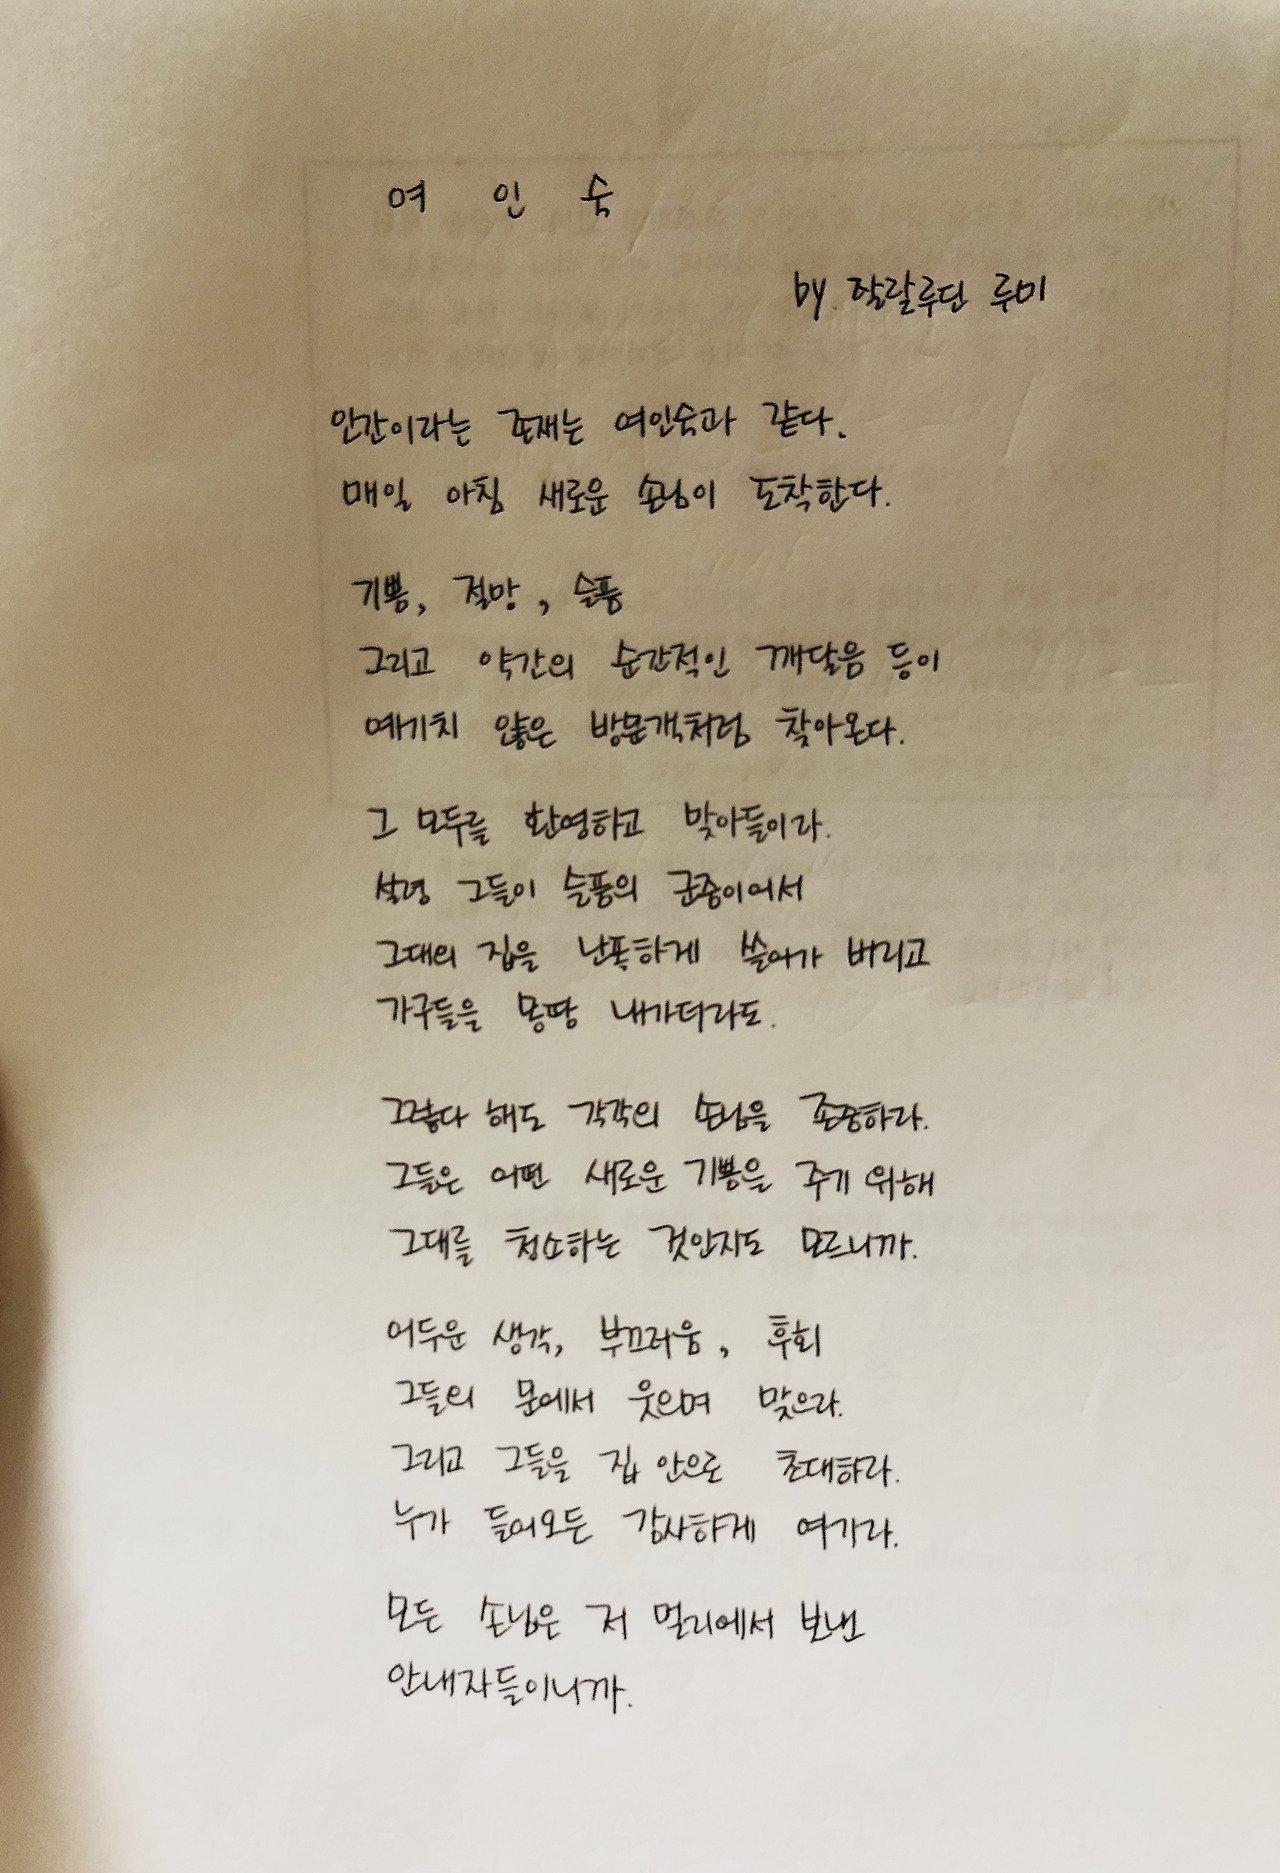 여 인 숙
by. 잘랄루딘 루미
인간이라는 존재는 여인숙과 같다.
매일 아침 새로운 손님이 도착한다.
기쁨, 절망, 슬픔
그리고 약간의 순간적인 깨달음 등이
예기치 않은 방문객처럼 찾아온다.
그 모두를 환영하고 맞아들이라.
설령 그들이 슬픔의 군중이어서
그대의 집을 난폭하게 쓸어가 버리고
가구들을 몽땅 내가더라도.
그렇다 해도 각각의 손님을 존중하라.
그들은 어떤 새로운 기쁨을 주기 위해
그대를 청소하는 것인지도 모르니까.
어두운 생각, 부끄러움, 후회
그들의 문에서 웃으며 맞으라.
그리고 그들을 집 안으로 초대하라.
누가 들어오든 감사하게 여기라.
모든 손님은 저 멀리에서 보낸
안내자들이니까.